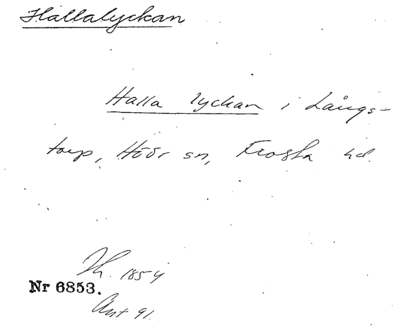 Hallalyckan
Halla lyckan i Långs-
torp, Höör sn, Frosta hd.
Th. 1854
Nr 6853.
Ant 91.